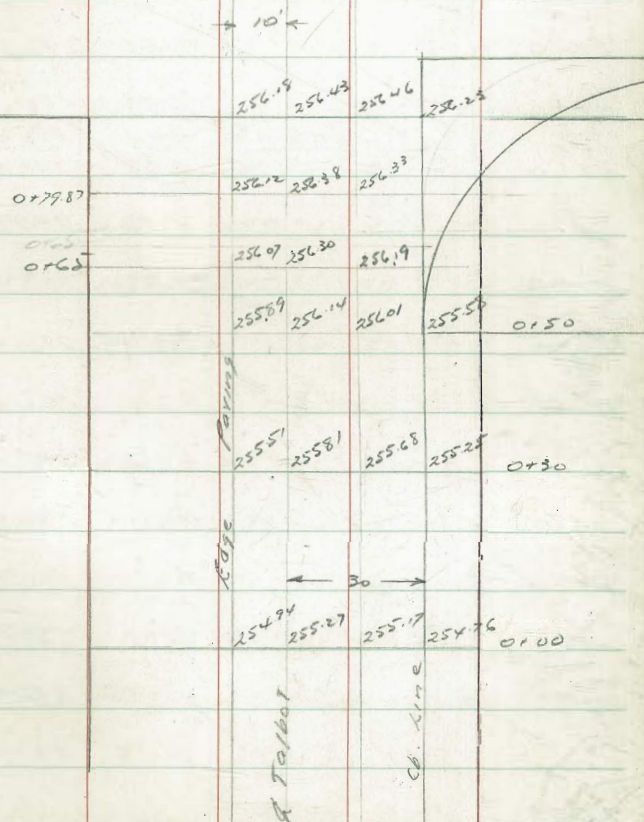 10'
256.18 256.43 256.46 256.23
0+79.87 256.12 256.38 256.33
0+65
0+65 256.07 256.30 256.19
255.89 256.14 256.01 255.58 0+50
Edge Paving
255.51 255.81 255.68 255.25 0+30
30
254.94 255.27 255.17 254.76 0+00
Talbot
Cb. Line